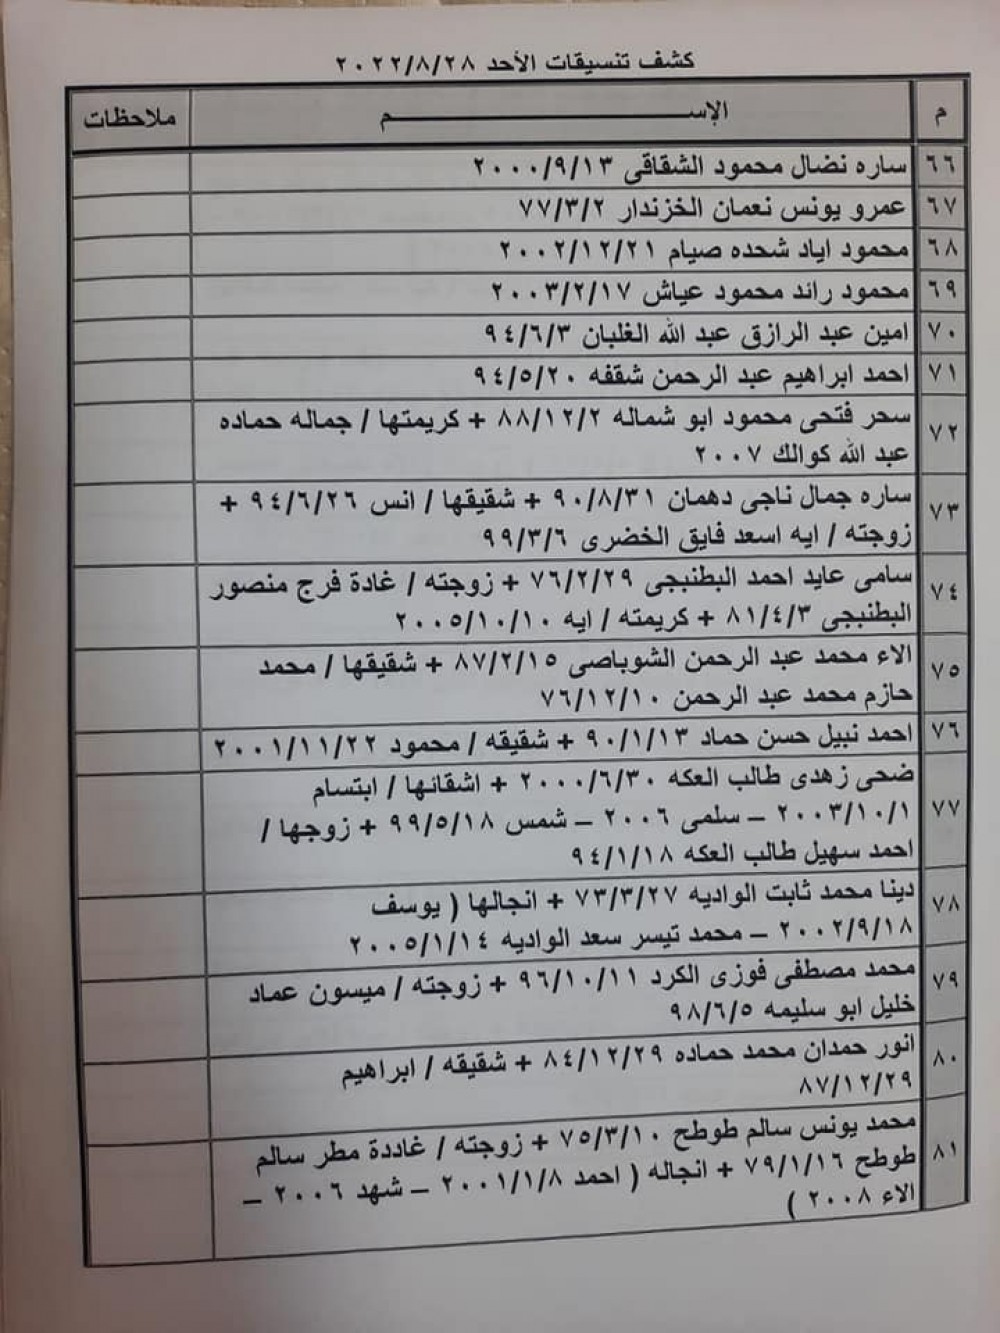 كشف تنسيقات الأحد ٢٠٢٢/٨/٢٨
م الإســـــــم ملاحظات
٦٦ ساره نضال محمود الشقاقى ٢٠٠٠/٩/١٣
٦٧ عمرو يونس نعمان الخزندار ٧٧/٣/٢
٦٨ محمود اياد شحده صيام ٢٠٠٢/١٢/٢١
٦٩ محمود رائد محمود عياش ٢٠٠٣/٢/١٧
٧٠ امين عبد الرازق عبد الله الغلبان ٩٤/٦/٣
٧١ احمد ابراهيم عبد الرحمن شقفه ٩٤/٥/٢٠
٧٢ سحر فتحى محمود ابو شماله ٨٨/١٢/٢ + كريمتها / جماله حماده
عبد الله كوالك ٢٠٠٧
٧٣ ساره جمال ناجى دهمان ٩٠/٨/٣١ + شقيقها / انس ٩٤/٦/٢٦ +
زوجته / ايه اسعد فايق الخضرى ٩٩/٣/٦
٧٤ سامى عايد احمد البطنيجى ٧٦/٢/٢٩ + زوجته / غادة فرج منصور
البطنيجى ٨١/٤/٣ + كريمته / ايه ٢٠٠٥/١٠/١٠
٧٥ الاء محمد عبد الرحمن الشوباصى ٨٧/٢/١٥ + شقيقها / محمد
حازم محمد عبد الرحمن ٧٦/١٢/١٠
٧٦ احمد نبيل حسن حماد ٩٠/١/١٣ + شقيقه / محمود ٢٠٠١/١١/٢٢
٧٧ ضحى زهدى طالب العكه ٢٠٠٠/٦/٣٠ + اشقائها / ابتسام
٢٠٠٣/١٠/١ – سلمى ٢٠٠٦ – شمس ٩٩/٥/١٨ + زوجها /
احمد سهيل طالب العكه ٩٤/١/١٨
٧٨ دينا محمد ثابت الواديه ٧٣/٣/٢٧ + انجالها ( يوسف
٢٠٠٢/٩/١٨ – محمد تيسر سعد الواديه ٢٠٠٥/١/١٤
٧٩ محمد مصطفى فوزى الكرد ٩٦/١٠/١١ + زوجته / ميسون عماد
خليل ابو سليمه ٩٨/٦/٥
٨٠ انور حمدان محمد حماده ٨٤/١٢/٢٩ + شقيقه / ابراهيم
٨٧/١٢/٢٩
٨١ محمد يونس سالم طوطح ٧٥/٣/١٠ + زوجته / غاددة مطر سالم
طوطح ٧٩/١/١٦ + انجاله ( احمد ٢٠٠١/١/٨ – شهد ٢٠٠٦ –
الاء ٢٠٠٨ )